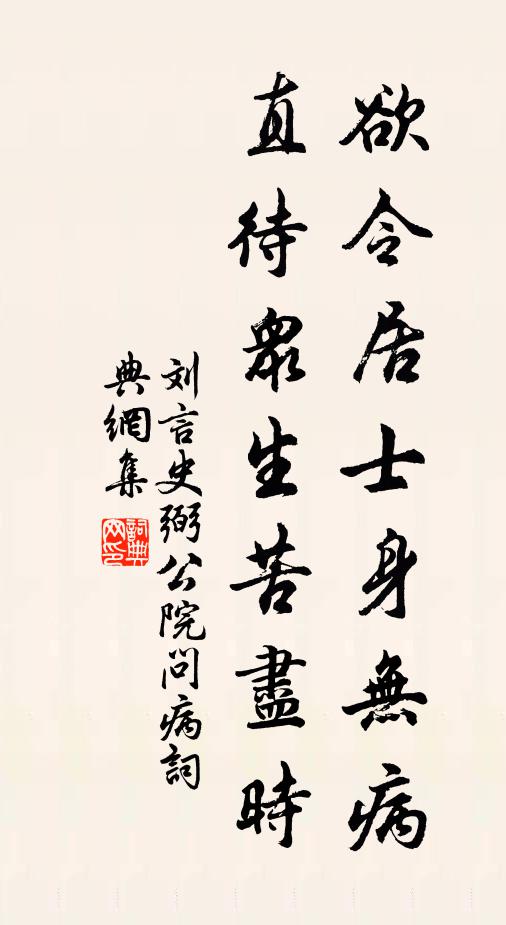 欲令居士身無病
直待衆生苦盡時
刘言史弼公院问病詞
典網集
詞典网印